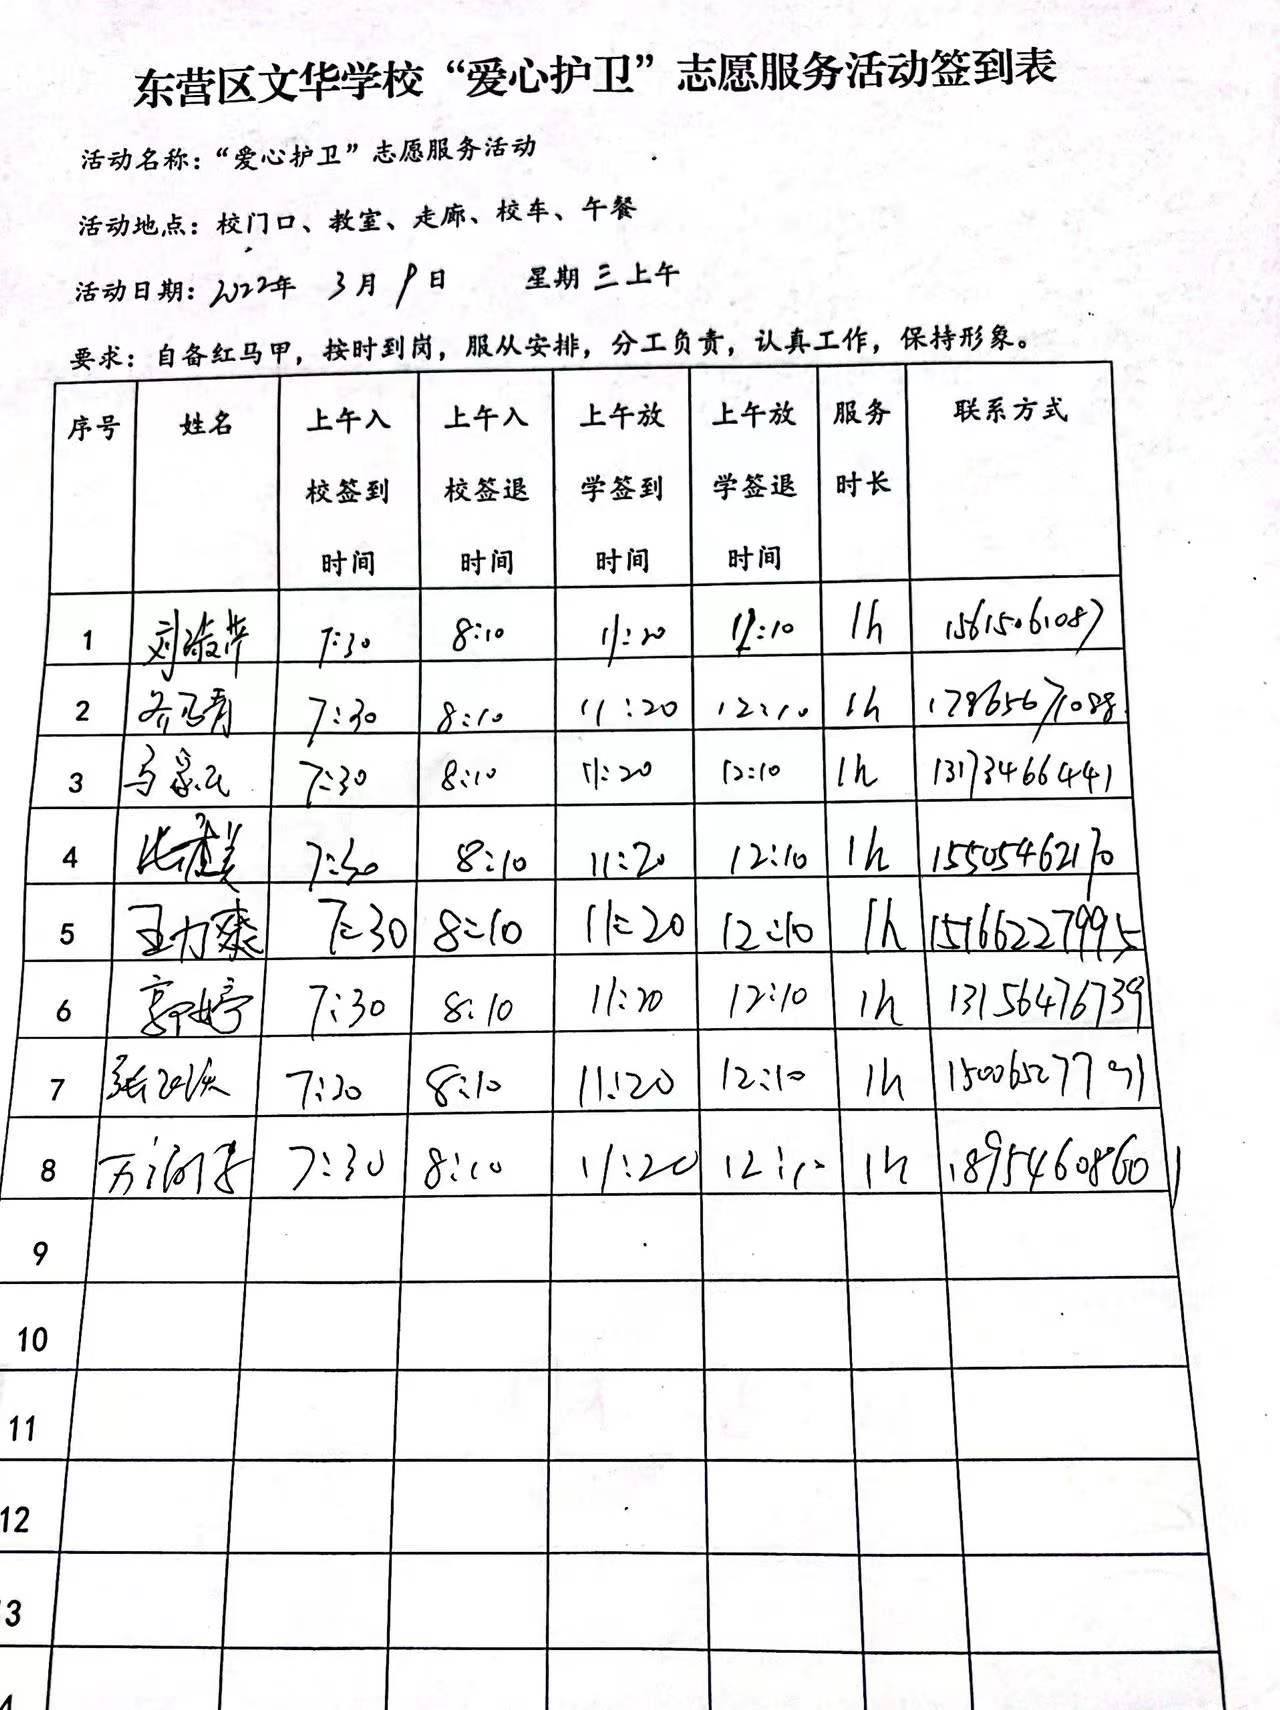 东营区文华学校“爱心护卫”志愿服务活动签到表
活动名称：“爱心护卫”志愿服务活动
活动地点：校门口、教室、走廊、校车、午餐
活动日期：2022年 3月 9日 星期三上午
要求：自备红马甲，按时到岗，服从安排，分工负责，认真工作，保持形象。
序号 姓名 上午入校签到时间 上午入校签退时间 上午放学签到时间 上午放学签退时间 服务时长 联系方式
1 7:30 8:10 11:20 12:10 1h 15615061087
2 7:30 8:10 11:20 12:10 1h 17865671088
3 7:30 8:10 11:20 12:10 1h 13173466441
4 7:30 8:10 11:20 12:10 1h 15505462170
5 王力爽 7:30 8:10 11:20 12:10 1h 15166227995
6 郭婷 7:30 8:10 11:20 12:10 1h 13156476739
7 7:30 8:10 11:20 12:10 1h
8 7:30 8:10 11:20 12:10 1h 18954608601
9
10
11
12
13